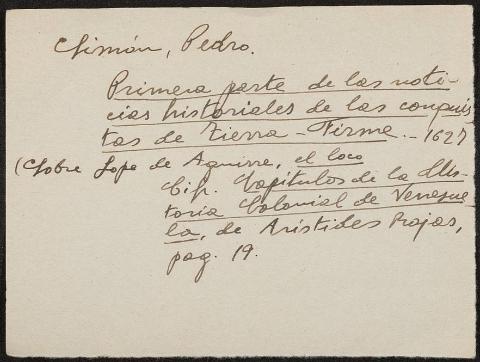 Simón, Pedro.
Primera parte de las noti-
cias historiales de las conquis
tas de Tierra-Firme.- 1627
(Sobre Lope de Aguirre, el loco
Cip. Capítulos de la His-
toria Colonial de Venezue
la, de Arístides Rojas,
pag. 19.